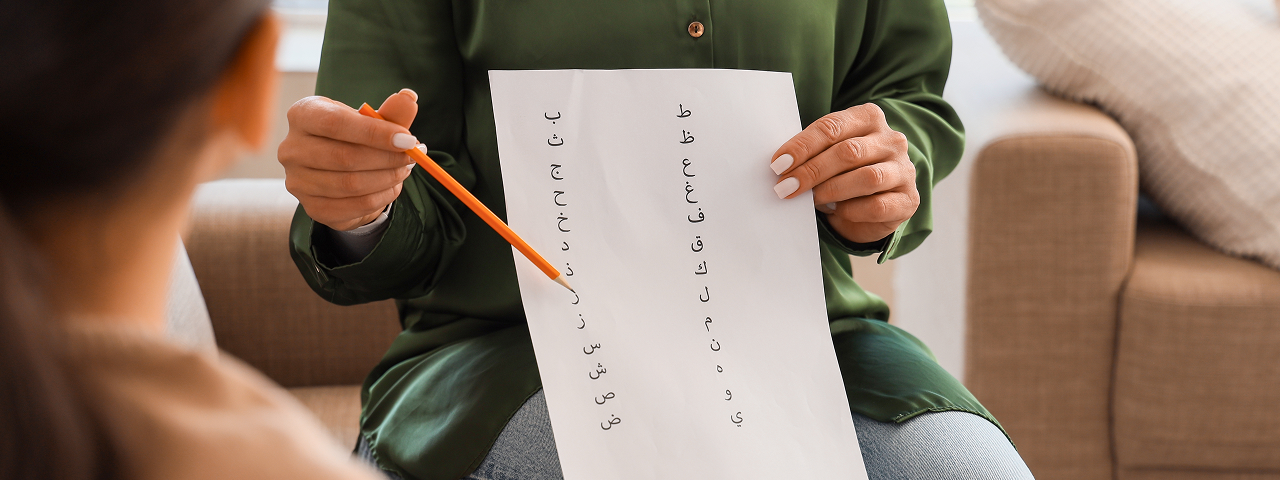 ب
ث
ج
ح
خ
د
ذ
ر
ز
س
ش
ص
ض
ط
ظ
ع
غ
ف
ق
ك
ل
م
ن
ه
و
ي